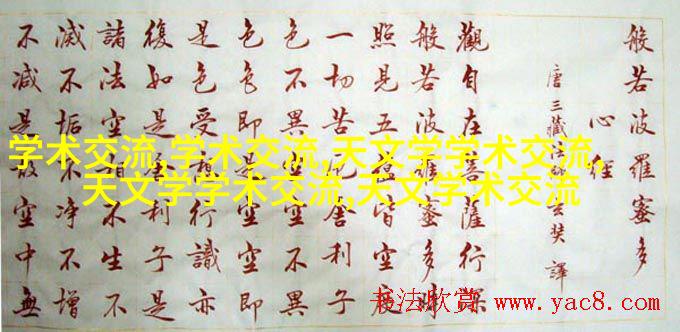 般若波羅蜜多
心經
唐三藏法師玄奘譯
觀自在菩薩行深
般若波羅蜜多時
照見五蘊皆空度
一切苦厄舍利子
色不異空空不異
色色即是空空即
是色受想行識亦
復如是舍利子是
諸法空相不生不
滅不垢不净不增
不减是故空中無
学术交流,学术交流,天文学学术交流,
天文学学术交流,天文学术交流
书法欣赏 www.yac8.com